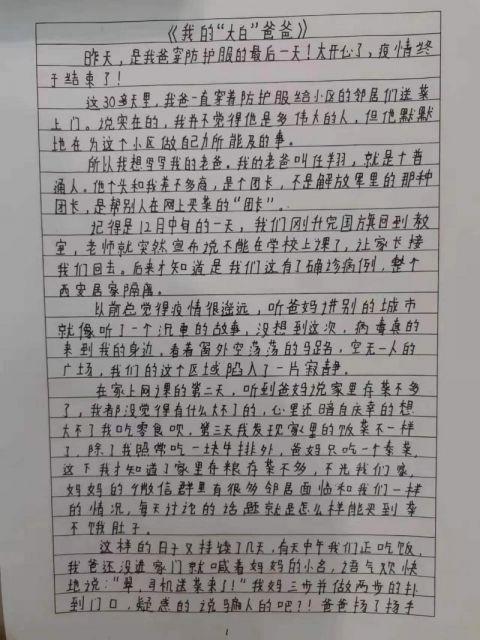 《我的“大白”爸爸》
昨天，是我爸穿防护服的最后一天！太开心了，疫情终
于结束了！
这30多天里，我爸一直穿着防护服给小区的邻居们送菜
上门。说实在的，我并不觉得他是多伟大的人，但他默默
地在为这个小区做自己力所能及的事。
所以我想写写我的老爸。我的老爸叫任翔，就是个普
通人。他个头和我差不多高，是个团长，不是解放军里的那种
团长，是帮别人在网上买菜的“团长”。
记得是12月中旬的一天，我们刚升完国旗回到教
室，老师就突然宣布说不能在学校上课了，让家长接
我们回去。后来才知道是我们这有了确诊病例，整个
西安居家隔离。
以前总觉得疫情很遥远，听爸妈讲别的城市
就像听了一个沉重的故事，没想到这次，病毒真的
来到我的身边，看着窗外空荡荡的马路，空无一人的
广场，我们的这个区域陷入了一片寂静。
在家上网课的第二天，听到爸妈说家里存菜不多
了，我都没觉得有什么大不了的，心里还暗自庆幸的想
大不了我吃零食呗，第三天我发现家里的饭菜不一样
了，除了我照常吃一块牛排外，爸妈只吃一个素菜，
这下我才知道了家里存粮存菜不多，不光我们家，
妈妈的个微信群里有很多邻居面临和我们一样
的情况，每天讨论的话题就是怎么样能买到菜
不饿肚子。
这样的日子又持续了几天，有天中午我们正吃饭，
我爸还没进家门就喊着妈妈的小名，语气欢快
地说：“翠，司机送菜来了！”我妈三步并做两步的扑
到门口，疑惑的说骗人的吧？！爸爸扬了扬手
1